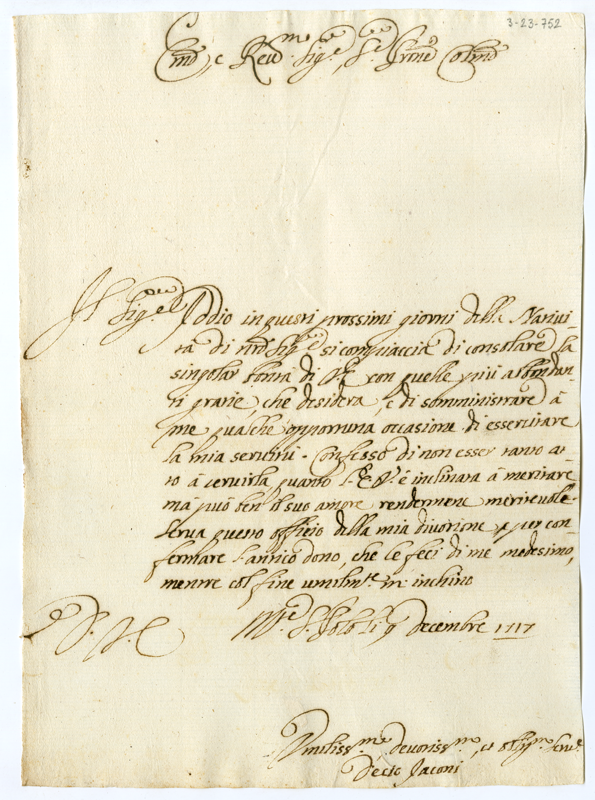 3-23-752
Em̃o, e Reu.mo Sig.re, S.re P̃rone Col̃mo
Il Sig.re Iddio in questi prossimi giorni della Nativi-
tà di nr̃o Sig.re si compiaccia di consolare la
singolar bontà di V.E. con quelle più abbondan-
ti grazie, che desidera, e di somministrare à
me qualche opportuna occasione di essercitare
la mia servitù. Confesso di non esser tanto at-
to à servirla, quanto l'E.V. è inclinata à meritare
mà può ben il suo amore rendermene meritevole.
Serva questo offizio della mia divozione per con-
fermare l'antico dono, che le feci di me medesimo,
mentre col fine umilm.te m'inchino
D. V. E.
9 Decembre 1717
Vmiliss.mo deuotiss.mo, et obligm̃o Seru.e
Decio Jaconi